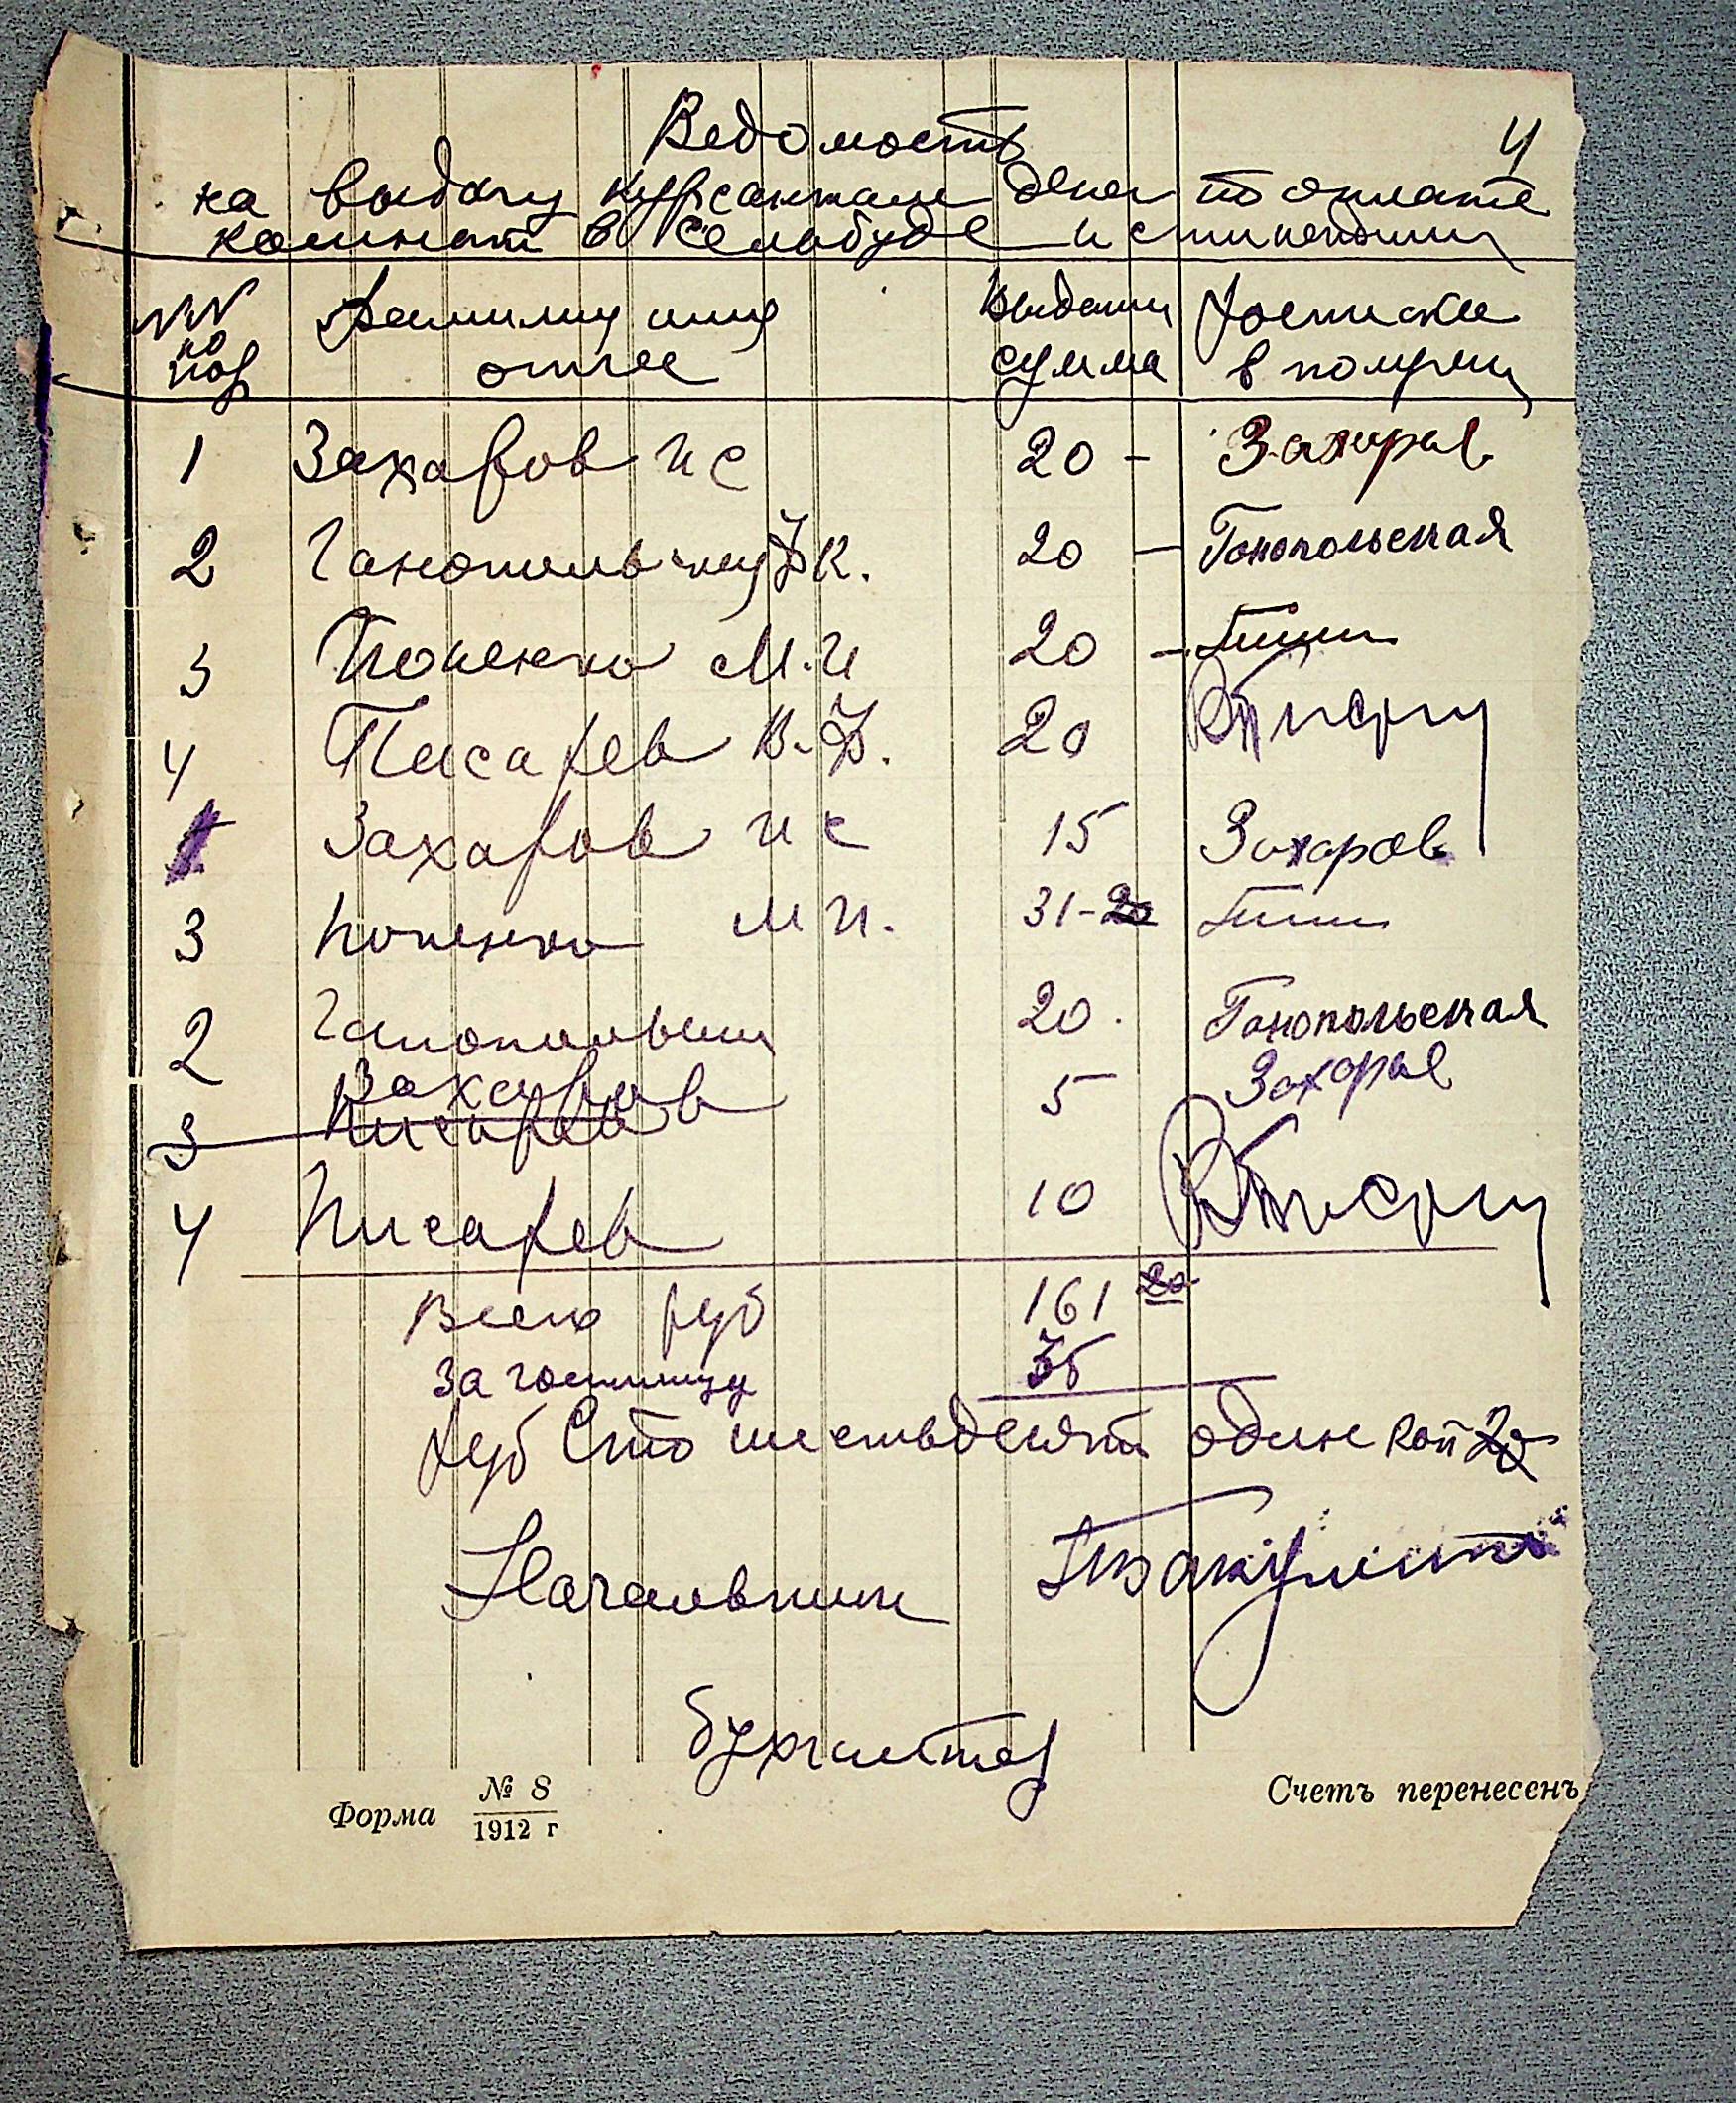 Ведомость 4
на выдачу курсантам денег по оплате
комнат в Сельбуде и стипендии
NN по пор Фамилия имя отче Выдани сумма Росписка в получ
1 Захаров И С 20 - Захаров
2 Ганопольскую Ф К. 20 — Гонопольская
3 Попенко М.И 20 —
4 Писарев В.Ф. 20
1 Захаров И С 15 Захаров
3 Попенко М И. 31-20
2 Ганопольски 20. Гонопольская
Захаров 5 Захаров
3 Писарев
4 Писарев 10
Всего руб 161 20
за гостиницу 35
руб Сто шестьдесят один коп 20
Начальник
бухгалтер
Форма № 8 1912 г Счетъ перенесенъ